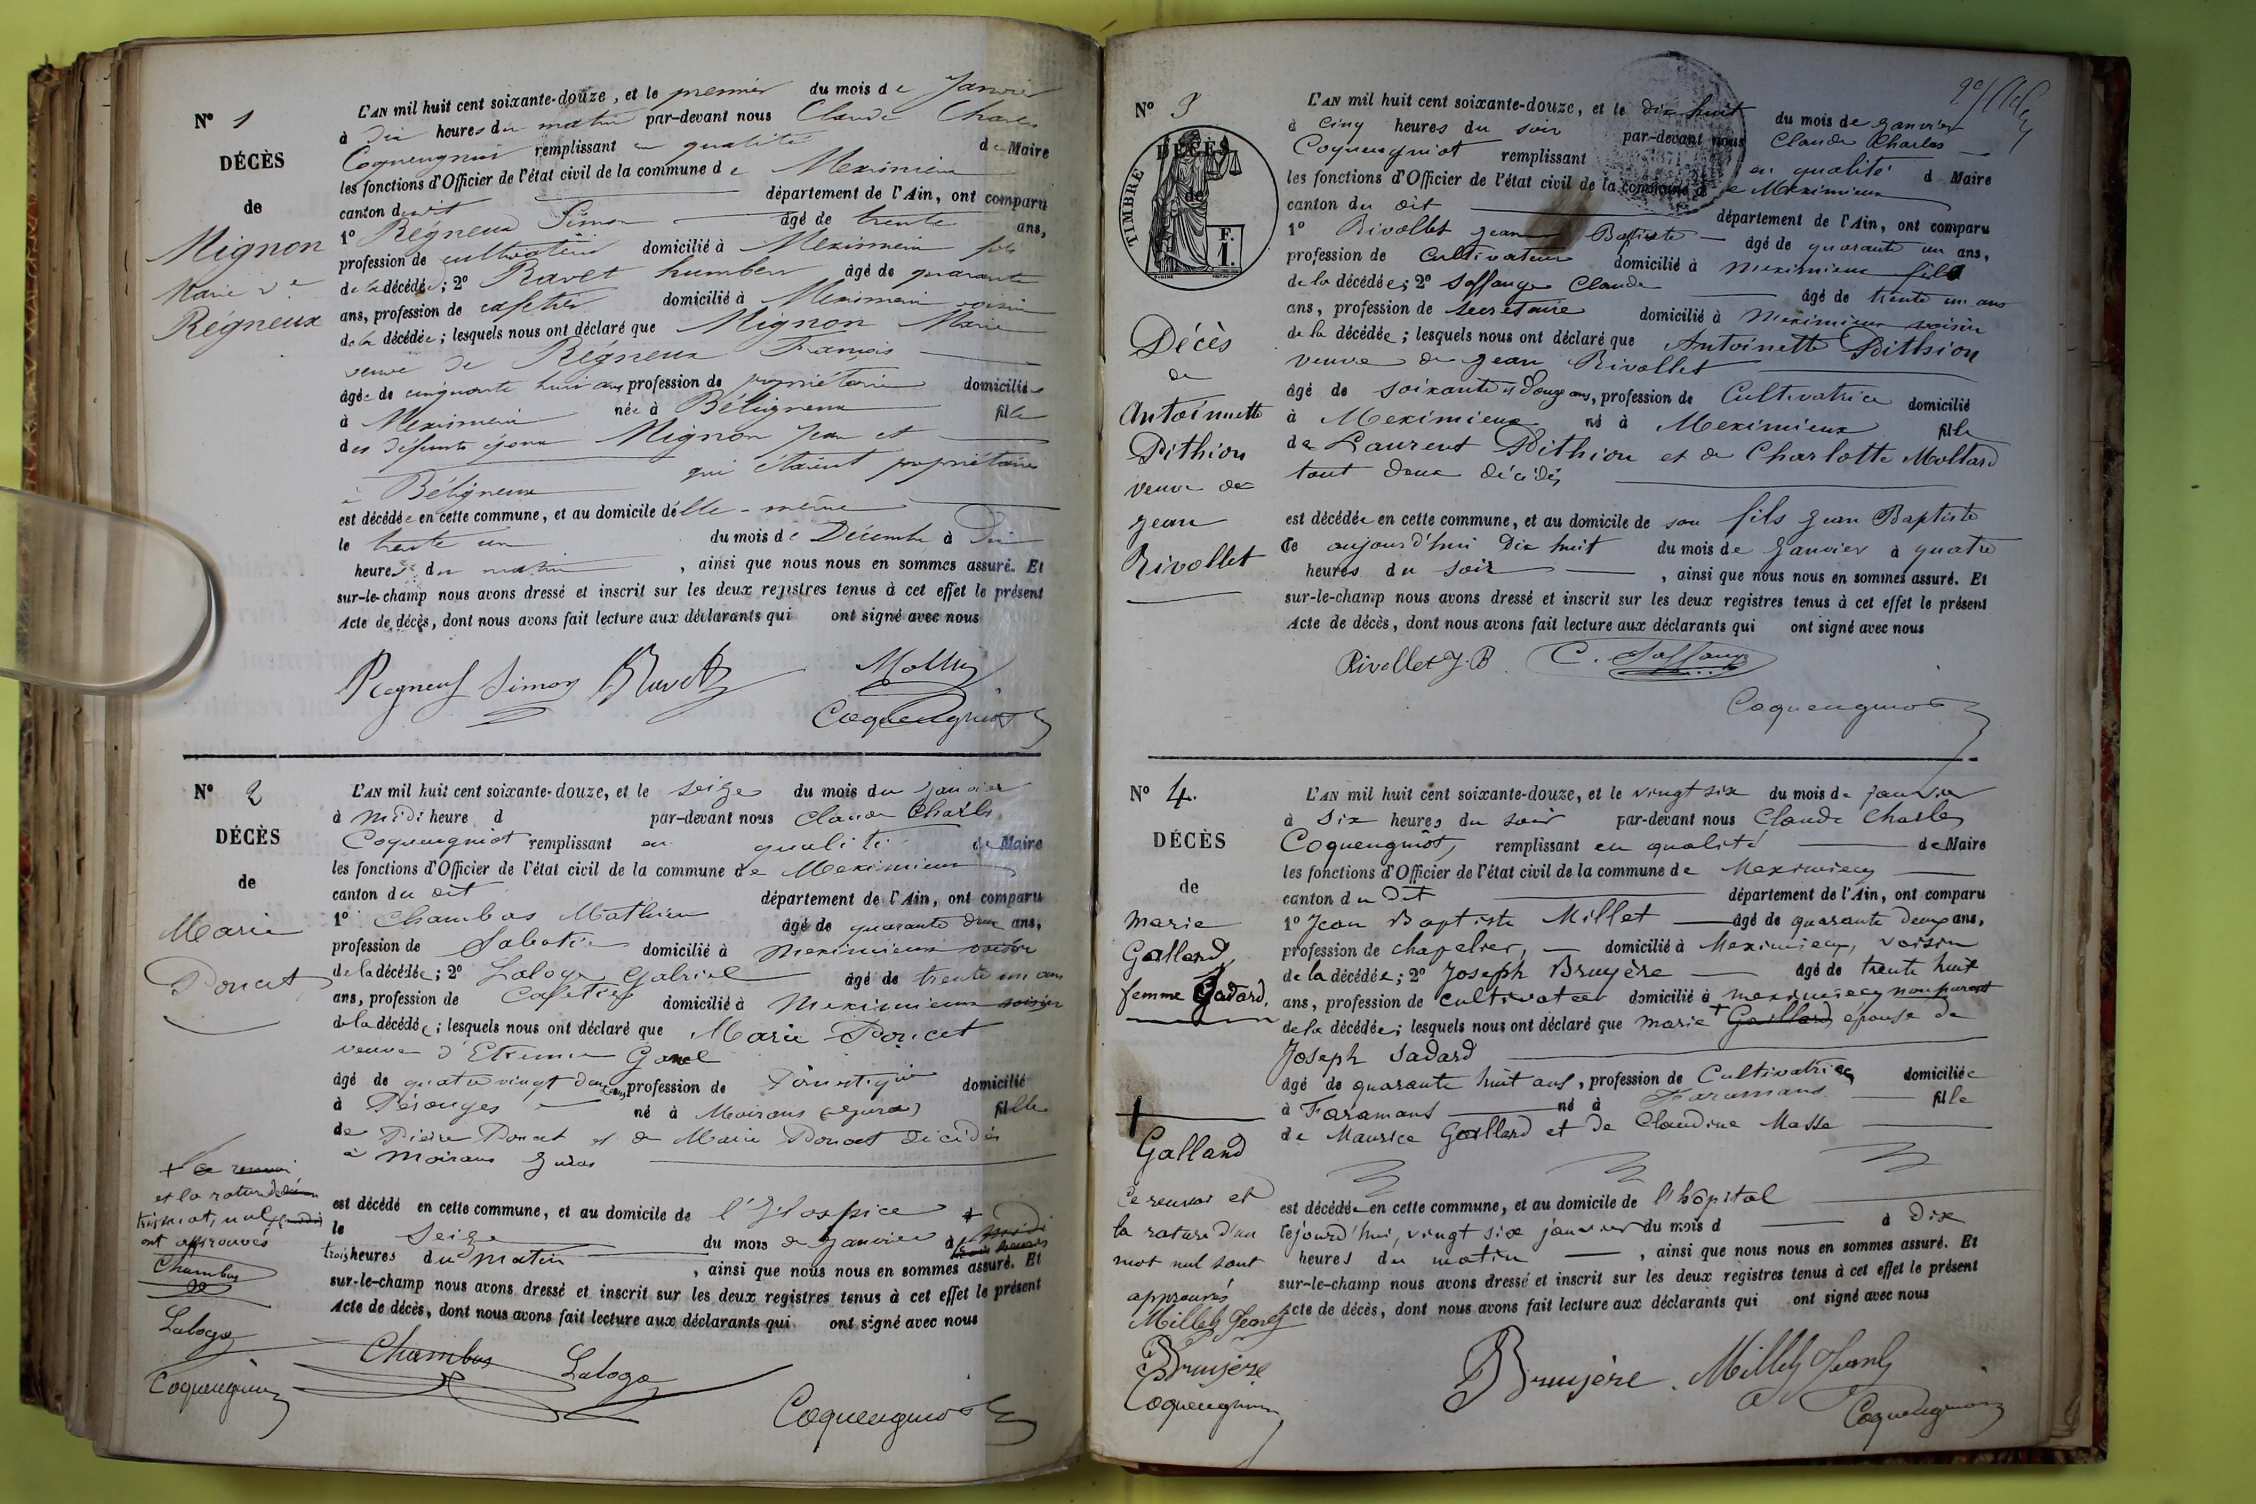 N° 1
DÉCÈS
de
Mignon
Marie Ve
Régneux
L'AN mil huit cent soixante-douze, et le premier du mois de Janvier
à dix heures du matin par-devant nous Claude Charles
Coquengniot remplissant en qualité de Maire
les fonctions d'Officier de l'état civil de la commune de Meximieux
canton dudit département de l'Ain, ont comparu
1° Régneux Simon âgé de trente ans,
profession de cultivateur domicilié à Meximieux fils
de la décédée; 2° Ravet humbert âgé de quarante
ans, profession de cafetier domicilié à Meximieux voisin
de la décédée; lesquels nous ont déclaré que Mignon Marie
veuve de Régneux François
âgée de cinquante huit ans profession de propriétaire domiciliée
à Meximieux née à Béligneux fille
des défunts époux Mignon Jean et
qui étaient propriétaires
à Béligneux
est décédée en cette commune, et au domicile d'elle-même
le trente un du mois de Décembre à Dix
heures du matin, ainsi que nous nous en sommes assuré. Et
sur-le-champ nous avons dressé et inscrit sur les deux registres tenus à cet effet le présent
Acte de décès, dont nous avons fait lecture aux déclarants qui ont signé avec nous
Regneux Simon Ravet
Coquengniot
N° 2
DÉCÈS
de
Marie
Poncet
L'AN mil huit cent soixante-douze, et le seize du mois du Janvier
à midi heure d par-devant nous Claude Charles
Coquengniot remplissant en qualité de Maire
les fonctions d'Officier de l'état civil de la commune de Meximieux
canton du dit département de l'Ain, ont comparu
1° Chambas Mathieu âgé de quarante deux ans,
profession de Sabotier domicilié à Meximieux voisin
de la décédée; 2° Laloge Gabriel âgé de trente un ans
ans, profession de Cafetier domicilié à Meximieux voisin
de la décédée; lesquels nous ont déclaré que Marie Poncet
veuve d'Etienne
âgé de quatre vingt deux ans profession de domicilié
à Pérouges né à Moirans (Jura) fille
de Pierre Poncet et de Marie Poncet décédés
à Moirans Jura
est décédé en cette commune, et au domicile de l'Hospice
le Seize du mois de Janvier à + midi
trois heures du matin, ainsi que nous nous en sommes assuré. Et
sur-le-champ nous avons dressé et inscrit sur les deux registres tenus à cet effet le présent
Acte de décès, dont nous avons fait lecture aux déclarants qui ont signé avec nous
+ Ce renvoi
et la rature de
trois mots nuls
ont approuvés
Chambas
Laloge
Coquengniot
Chambas Laloge
Coquengniot
N° 3
TIMBRE
DÉCÈS
de
F.
1.
Décès
de
Antoinette
Pithion
veuve de
Jean
Rivollet
L'AN mil huit cent soixante-douze, et le dix huit du mois de Janvier
à cinq heures du soir par-devant nous Claude Charles
Coquengniot remplissant en qualité d Maire
les fonctions d'Officier de l'état civil de la commune de Meximieux
canton du dit département de l'Ain, ont comparu
1° Rivollet Jean Batiste âgé de quarante un ans,
profession de Cultivateur domicilié à Meximieux fils
de la décédée; 2° Saffange Claude âgé de trente un ans
ans, profession de secretaire domicilié à Meximieux voisin
de la décédée; lesquels nous ont déclaré que Antoinette Pithion
veuve de Jean Rivollet
âgé de soixante et douze ans, profession de Cultivatrice domicilié
à Meximieux né à Meximieux fille
de Laurent Pithion et de Charlotte Mollard
tout deux décédés
est décédée en cette commune, et au domicile de son fils Jean Baptiste
le aujourd'hui Dix huit du mois de Janvier à quatre
heures du soir, ainsi que nous nous en sommes assuré. Et
sur-le-champ nous avons dressé et inscrit sur les deux registres tenus à cet effet le présent
Acte de décès, dont nous avons fait lecture aux déclarants qui ont signé avec nous
Rivollet J. B. C. Saffange
Coquengniot
N° 4.
DÉCÈS
de
Marie
Galland,
femme Sadard.
L'AN mil huit cent soixante-douze, et le vingt six du mois de Janvier
à Six heures du soir par-devant nous Claude Charles
Coquengniot, remplissant en qualité de Maire
les fonctions d'Officier de l'état civil de la commune de Meximieux
canton du Dit département de l'Ain, ont comparu
1° Jean Baptiste Millet âgé de quarante deux ans,
profession de chapelier, domicilié à Meximieux, voisin
de la décédée; 2° Joseph Bruyère âgé de trente huit
ans, profession de cultivateur domicilié à Meximieux non parent
de la décédée; lesquels nous ont déclaré que Marie + Gaillard épouse de
Joseph Sadard
âgé de quarante huit ans, profession de Cultivatrice domiciliée
à Faramans né à Faramans fille
de Maurice Gaillard et de Claudine Masse
est décédée en cette commune, et au domicile de l'hôpital
le jourd'hui, vingt six janvier du mois d à dix
heures du matin, ainsi que nous nous en sommes assuré. Et
sur-le-champ nous avons dressé et inscrit sur les deux registres tenus à cet effet le présent
Acte de décès, dont nous avons fait lecture aux déclarants qui ont signé avec nous
+
Galland
Ce renvoi et
la rature d'un
mot nul sont
approuvés
Millet Jean
Bruyère
Coquengniot
Bruyère. Millet Jean
Coquengniot